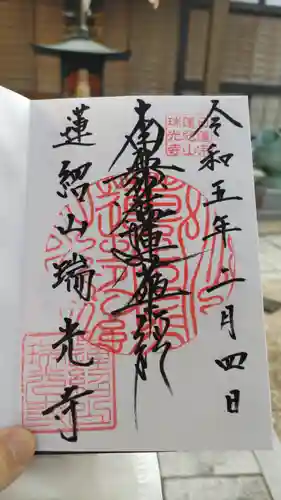 日蓮宗
蓮紹山
瑞光寺
令和五年二月四日
南無妙法蓮華経
蓮紹山瑞光寺